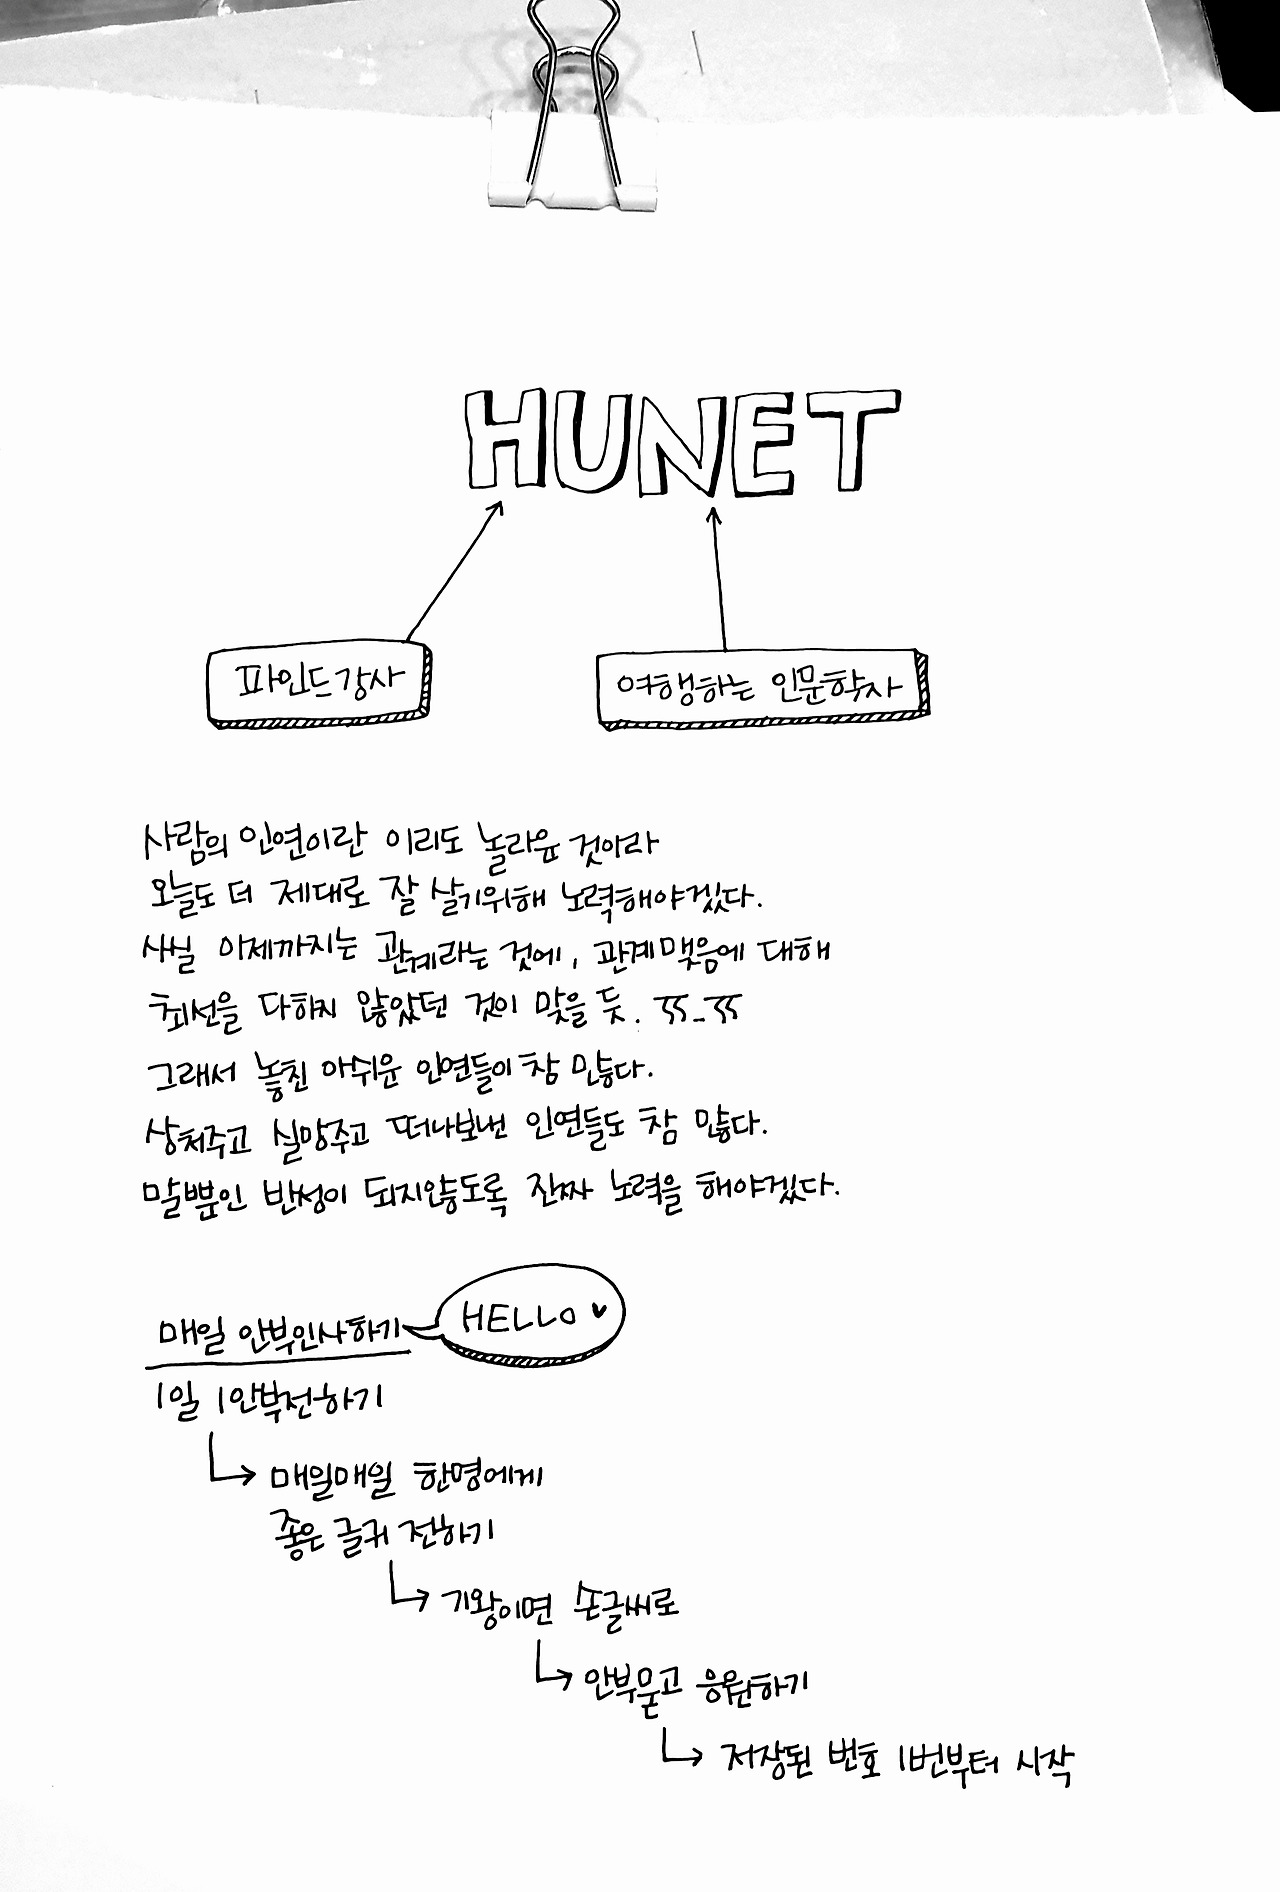 HUNET
파인드강사
여행하는 인문학자
사람의 인연이란 이리도 놀라운 것이라
오늘도 더 제대로 잘 살기위해 노력해야겠다.
사실 이제까지는 관계라는 것에, 관계맺음에 대해
최선을 다하지 않았던 것이 맞을 듯. ㅠㅠ_ㅠㅠ
그래서 놓친 아쉬운 인연들이 참 많다.
상처주고 실망주고 떠나보낸 인연들도 참 많다.
말뿐인 반성이 되지않도록 진짜 노력을 해야겠다.
매일 안부인사하기
HELLO ♥
1일 1안부전하기
매일매일 한명에게
좋은 글귀 전하기
기왕이면 손글씨로
안부묻고 응원하기
저장된 번호 1번부터 시작